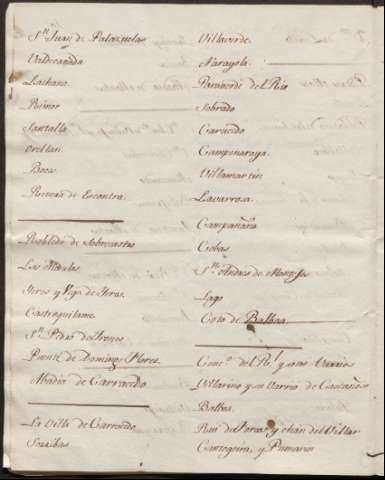 Sn. Juan de Palazuelas
Valdecañada
Lachana
Rimor
Santalla
Orellan
Boca
de Escontra
Robledo de Sobrecastro
Las Medulas
Yeres y Vega de Yeres
Castroquilame
Sn. Pedro de Trones
Puente de Domingo Florez
Abadia de Carracedo
La Villa de Carracedo
Sorribas
Villaverde
Narayola
Paradela del Rio
Sobrado
Carucedo
Camponaraya
Villamartin
Lavarrosa
Campañana
Cobas
Sn. Andres de
Lago
Coto de Balboa
Conco. del Rl. y otros Varrios
Villarino y su Varrio de
Balboa
Ruidelamas y chan del Villar
Canteyeira, y Pumarin